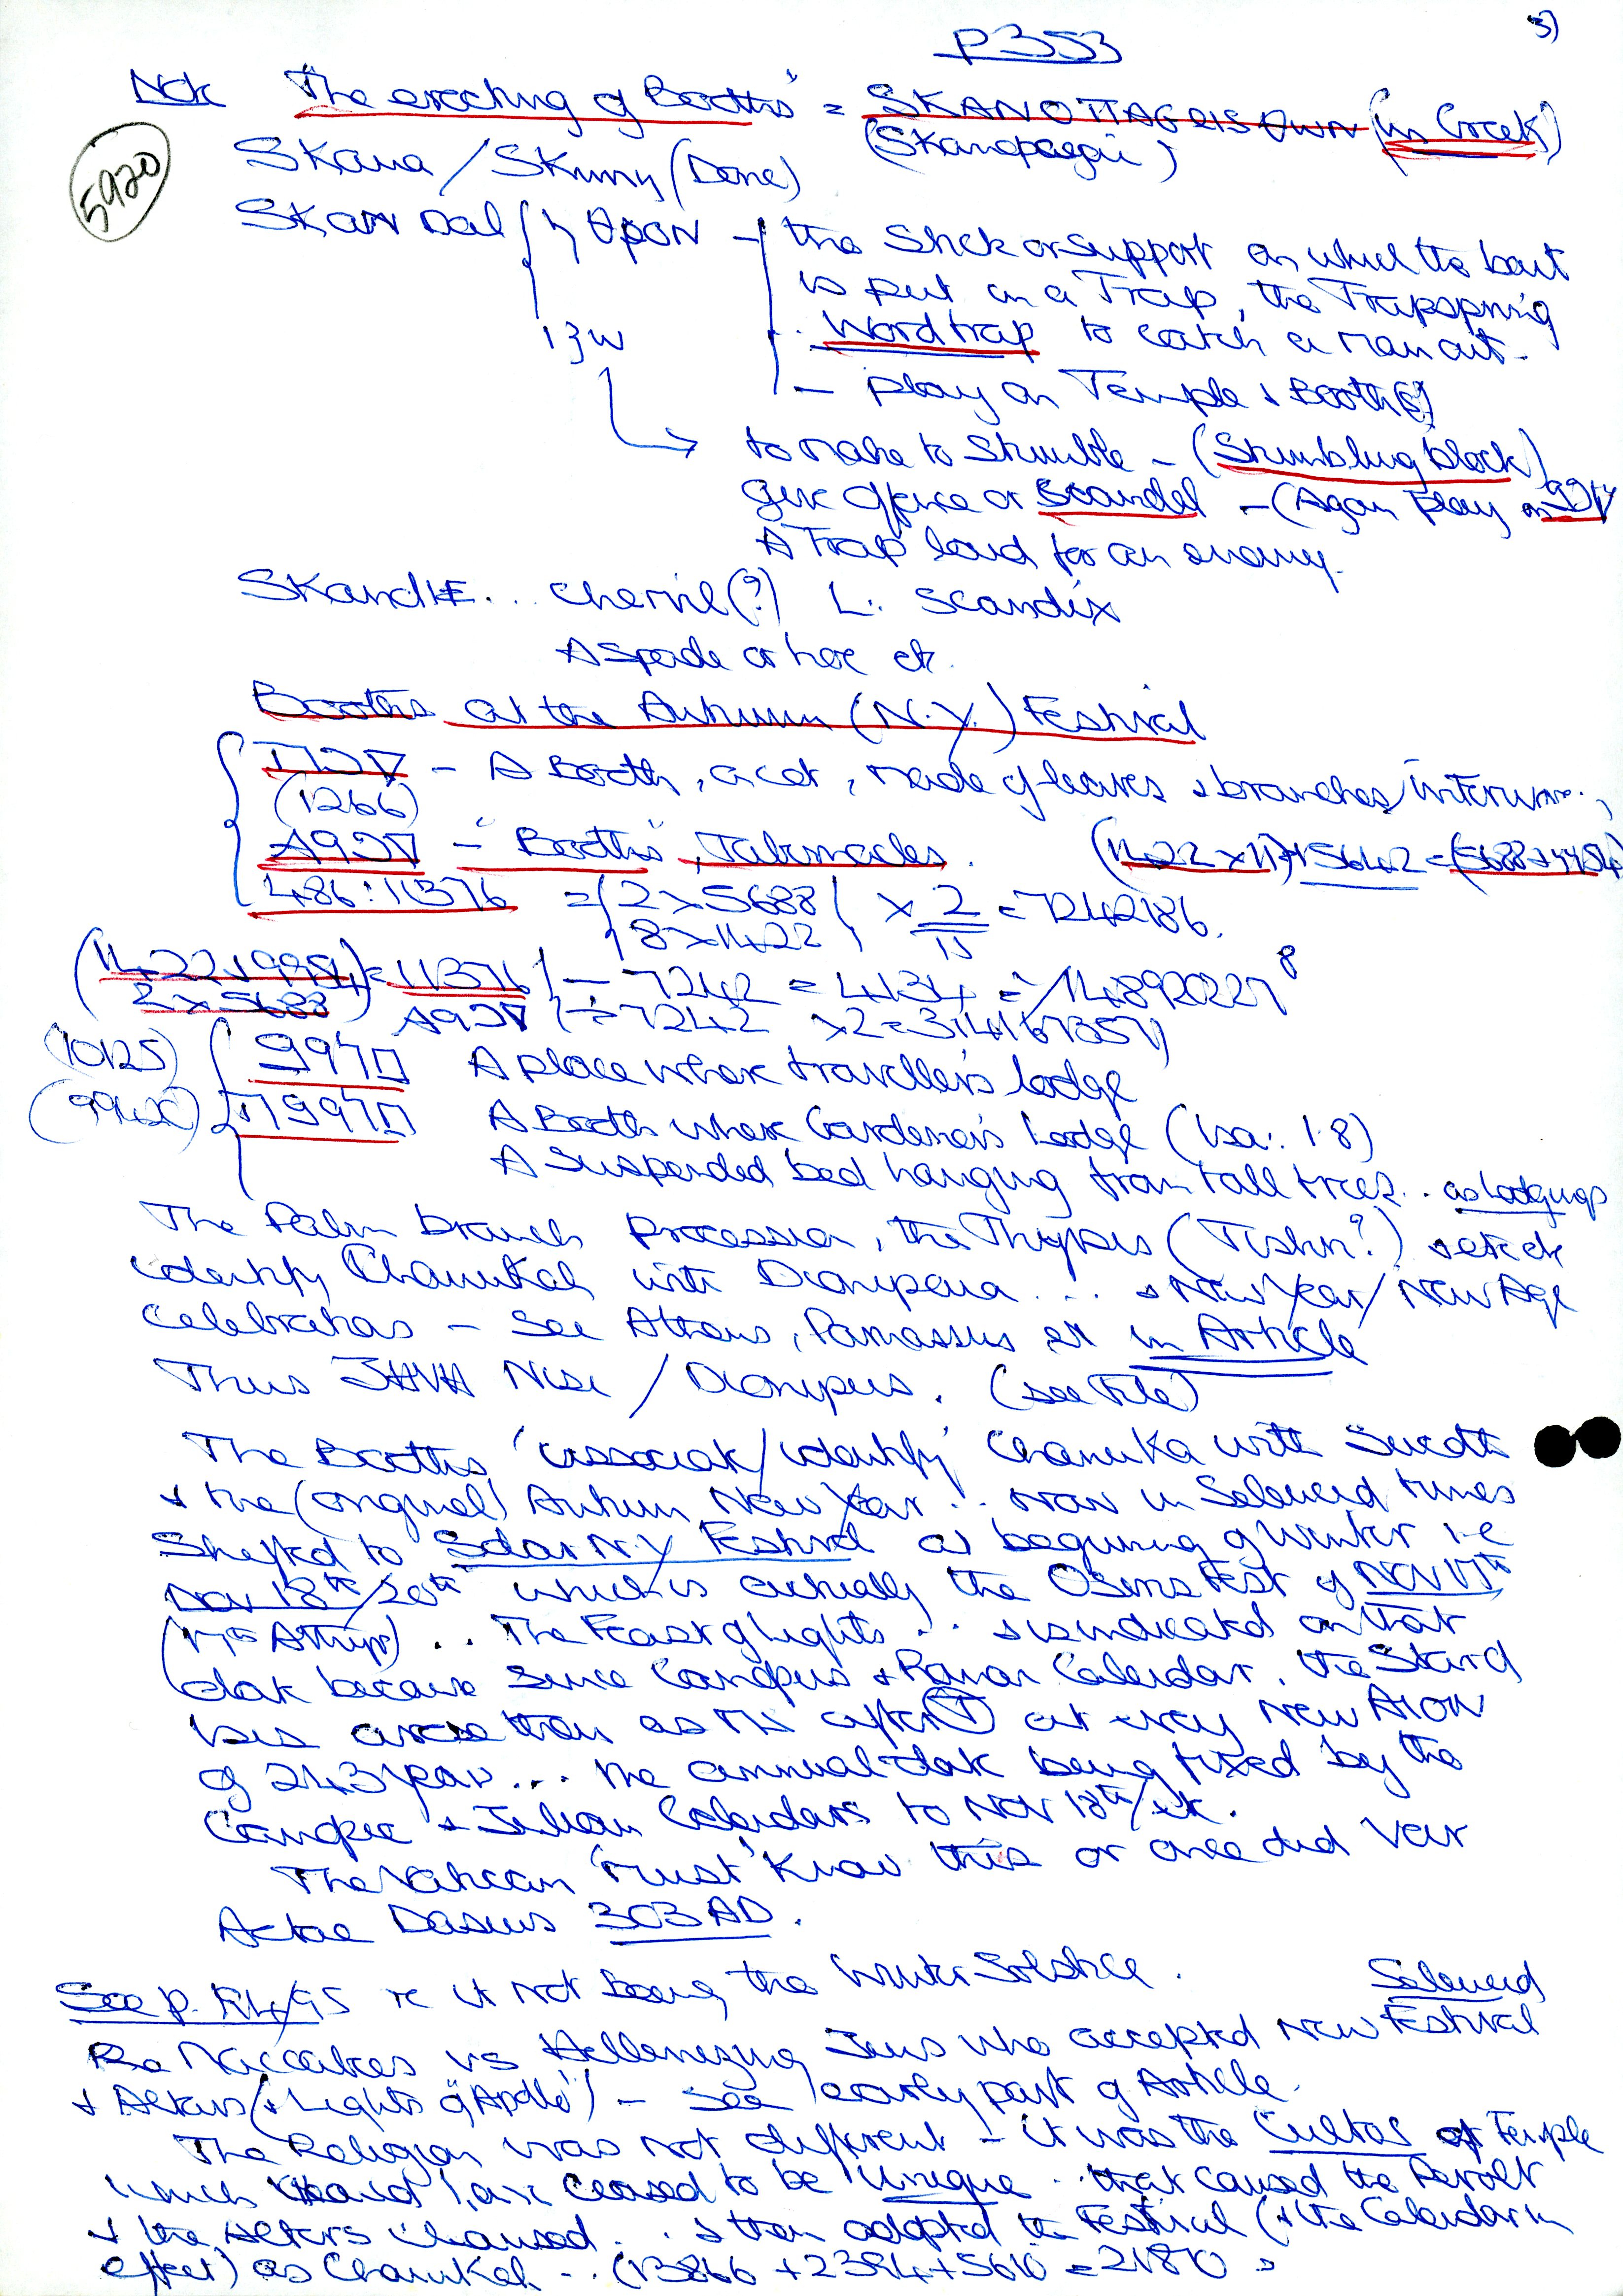 3)
P353
Note The erecting of Booths' = SKANOΠAGEISθWN (in Greek)
(Skanopagai)
SKana / SKnny (Dene)
5920
SKAN Dal / ηθpoN - the Stick or support on which the bait
is put in a Trap, the Trapspring
ιζω . Wordtrap to catch a man out.
- play on Temple & Booth(s)
to make to Stumble - (Stumbling block)
give offence or Scandal - (Again play on
A Trap laid for an enemy.
SKandIE.. Chervil(?) L. Scandix
A spade or hoe etc.
Booths at the Autumn (N.Y.) Festival
- A Booth, a cot, made of leaves & branches
(1266)
- "Booths", Tabernacles. (1422 x 11) = 15642 = (5688 + 9954)
486:11376 = (2 x 5688 / 8 x 1422) x 2/11 = 7242186.
(1422 + 9954) = 11376 - 7242 = 4134 = /14892027 8
2 x 5688 ÷ 7242 x 2 = 3141673571
(10125) A place where travellers lodge
A Booth where Gardeners lodge (Isa: 1.8)
A Suspended bed hanging from tall trees.. as lodgings
The Palm branch procession, the Thyrsus (Tishri?) etc etc
identify Chanukah with Dionysia ... & New Year/New Age
Celebrations - See Athens, Parnassus etc in Article
Thus JHVH Nisi / Dionysus. (see File)
The Booths 'associate/identify' Chanuka with Succoth
& the (original) Autumn New Year.. now in Seleucid times
Shifted to Solar N.Y Festival as beginning of Winter i.e
Nov 18th/20th which is actually the Osiris Fest of Nov 17th
(17th Athyr).. The Feast of Lights .. & is indicated on that
date because since Canopus & Roman Calendar, the Star
Isis at every New Aion
of 243 years... the annual date being fixed by the
Canopic & Julian Calendars to Nov 18th/etc.
The Vatican 'must' know this or once did Vair
Actae Dasius 303 AD.
See p. re it not being the Winter Solstice.
Seleucid
Re Maccabees vs Hellenezing Jews who accepted New Festival
& Altars (& Lights of "Apollo") - See early part of Article.
The Religion was not different - it was the Cultos of Temple
which would have ceased to be Unique .. that caused the Revolt
& the Altars cleansed .. & then adopted the Festival (& the Calendar in
effect) as Chanukah .. (13866 + 2394 + 5610 = 21870 =